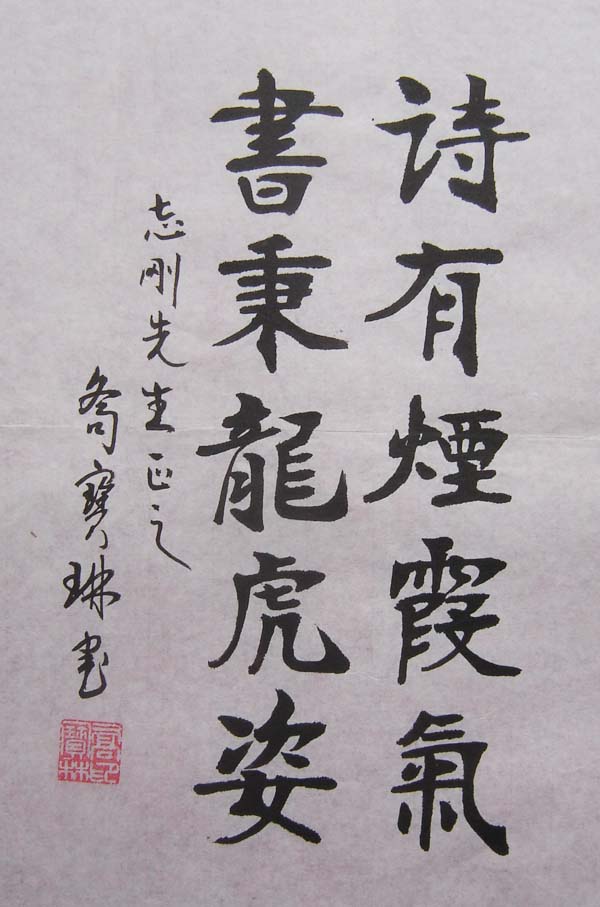 詩有煙霞氣
書秉龍虎姿
志剛先生正之
喬寶琳書